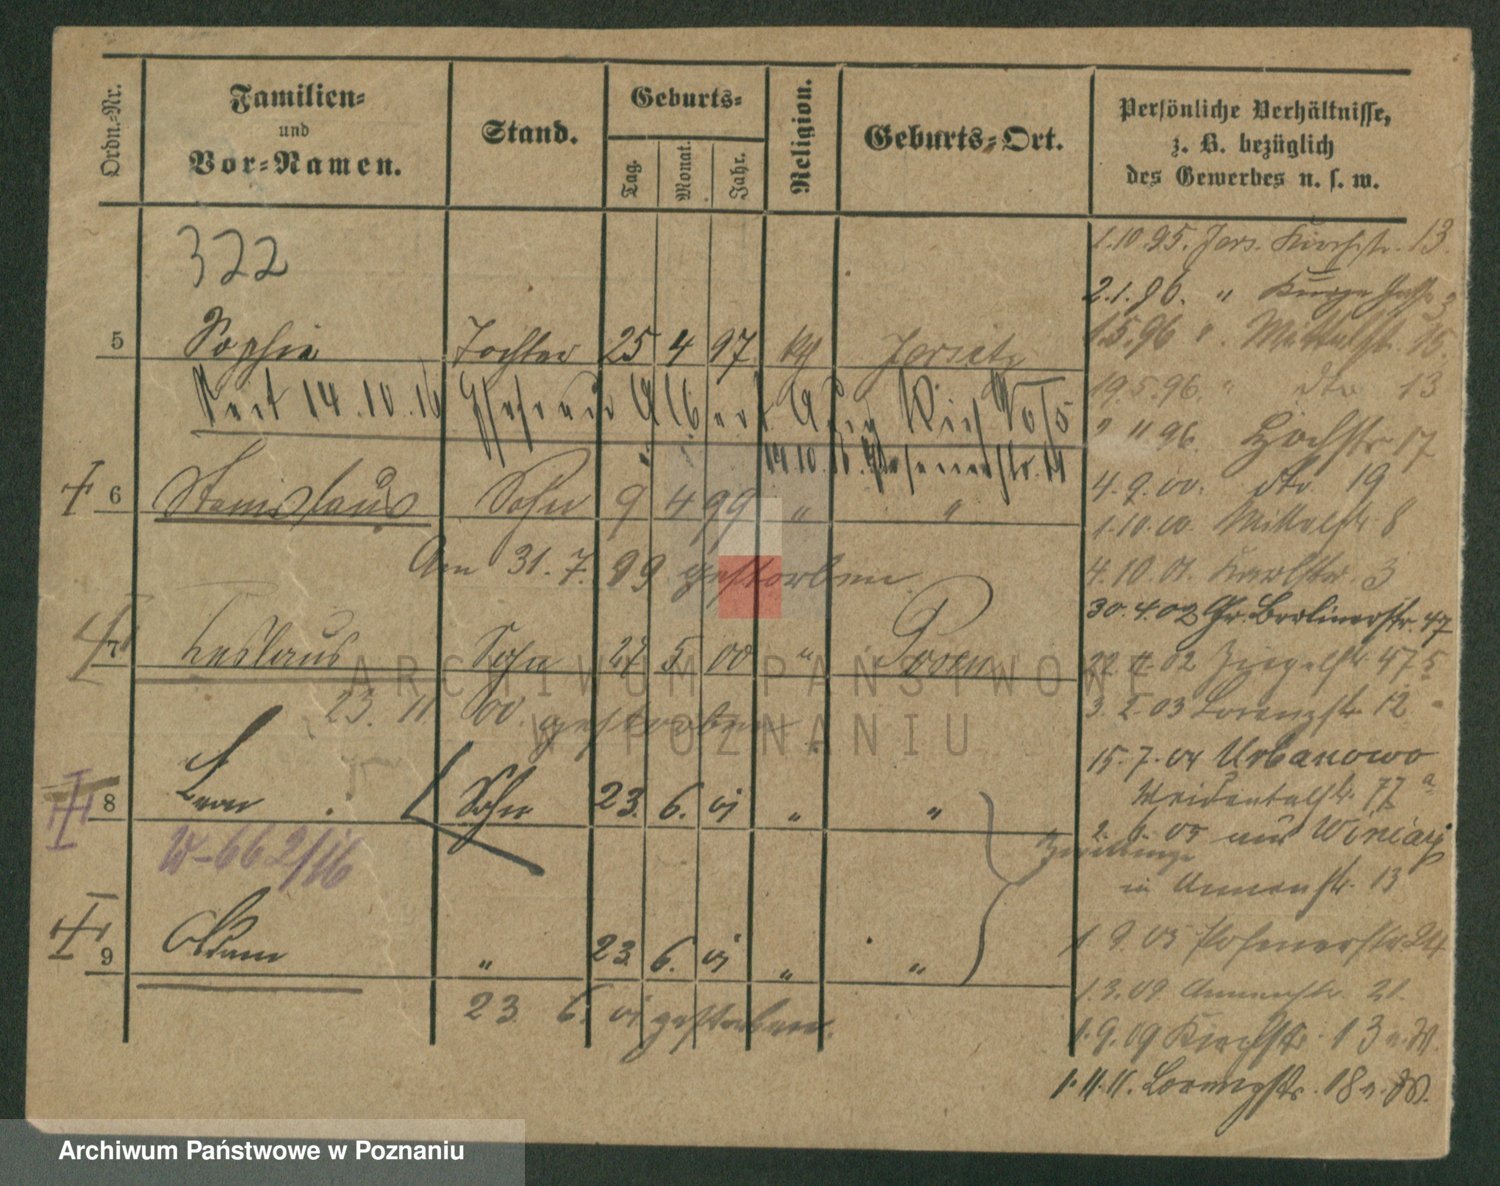 Ordn.-Nr.
Familien-
und
Vor-Namen.
Stand.
Geburts-
Tag.
Monat.
Jahr.
Religion.
Geburts-Ort.
Persönliche Verhältnisse,
z. B. bezüglich
des Gewerbes u. s. w.
322
1.10.95. Jers. Kirchstr. 13.
2.1.96. " Kurze
1.5.96 " Mittelstr. 15
5 Sophie Tochter 25 4 97 kth Jersitz
19.5.96. " dto 13
Seit 14.10.16 Ehefrau Albert
11 96. Hochstr 17
14.10.16. Posenerstr. 14
6 Stanislaus Sohn 9 4 99 " "
4.9.00. dto 19
1.10.00. Mittelstr. 8
Am 31.7.99 gestorben
4.10.01. Karlstr. 3
30.4.02 Gr. Berlinerstr. 47
7 Ceslaus Sohn 27 5 00 " Posen
02 Ziegelstr. 47
23. 11 00. gestorben
3.2.03 Lorenzstr 12
15.7.04 Urbanowo
8 Leon Sohn 23. 6. 01 " "
Weidentalstr. 77a
2.6.05 aus Winiary
Zwillinge
W-662/16
in Annenstr. 13
9 Adam " 23. 6. 01 " "
1.9.05 Posenerstr 24
1.3.09 Annenstr. 21.
23. 6. 01 gestorben.
1.9.09 Kirchstr. 13 n.W.
1.11.11. Lorenzstr. 18 n.W.
ARCHIWUM PAŃSTWOWE
W POZNANIU
Archiwum Państwowe w Poznaniu